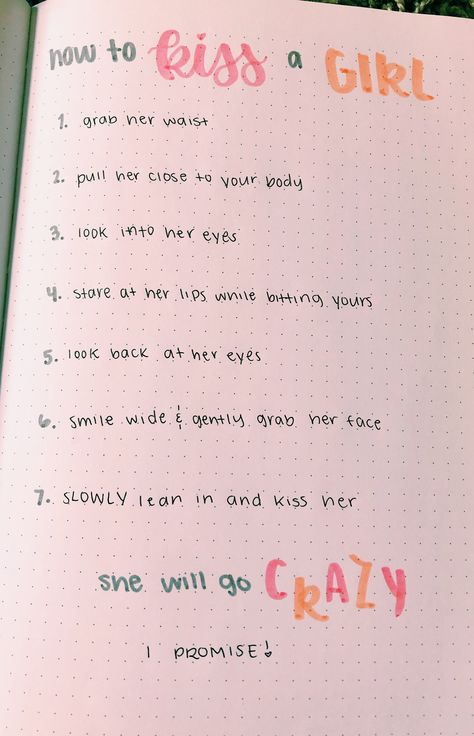 how to kiss a GIRL
1. grab her waist
2. pull her close to your body
3. look into her eyes
4. stare at her lips while bitting yours
5. look back at her eyes
6. smile wide & gently grab her face
7. SLOWLY lean in and kiss her
she will go CRAZY
I PROMISE!